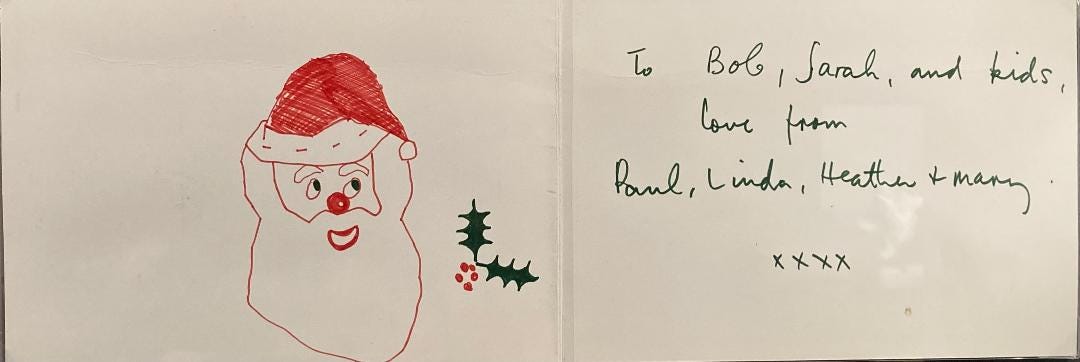 To Bob, Sarah, and kids,
love from
Paul, Linda, Heather + mary.
xxxx